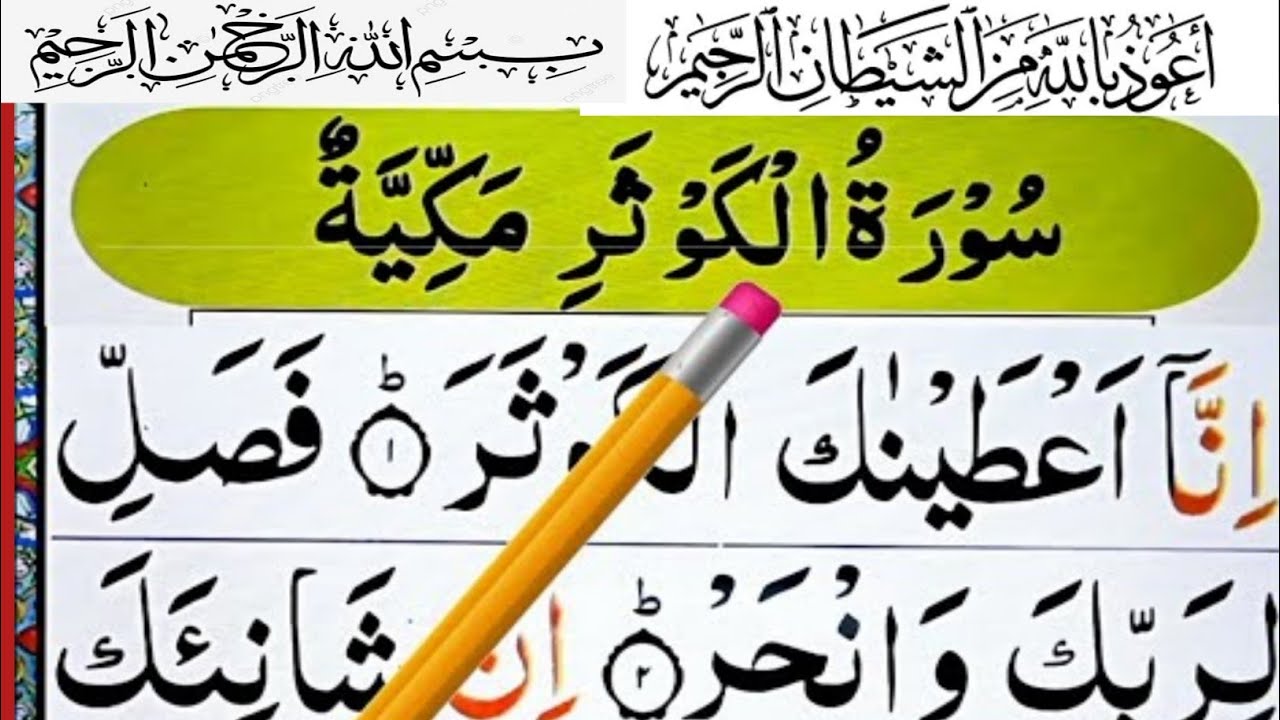 أعوذ بالله من الشيطان الرجيم
بِسْمِ اللهِ الرَّحْمٰنِ الرَّحِيْمِ
سُوْرَةُ الْكَوْثَرِ مَكِّيَّةٌ
اِنَّاۤ اَعْطَيْنٰكَ الْكَوْثَرَ ؕ ۝١ فَصَلِّ
لِرَبِّكَ وَانْحَرْ ؕ ۝٢ اِنَّ شَانِئَكَ